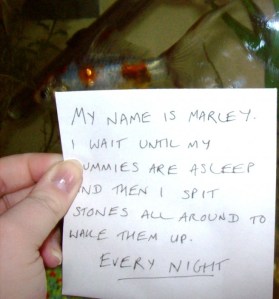 MY NAME IS MARLEY.
I WAIT UNTIL MY
UMMIES ARE ASLEEP
ND THEN I SPIT
STONES ALL AROUND TO
WAKE THEM UP.
EVERY NIGHT